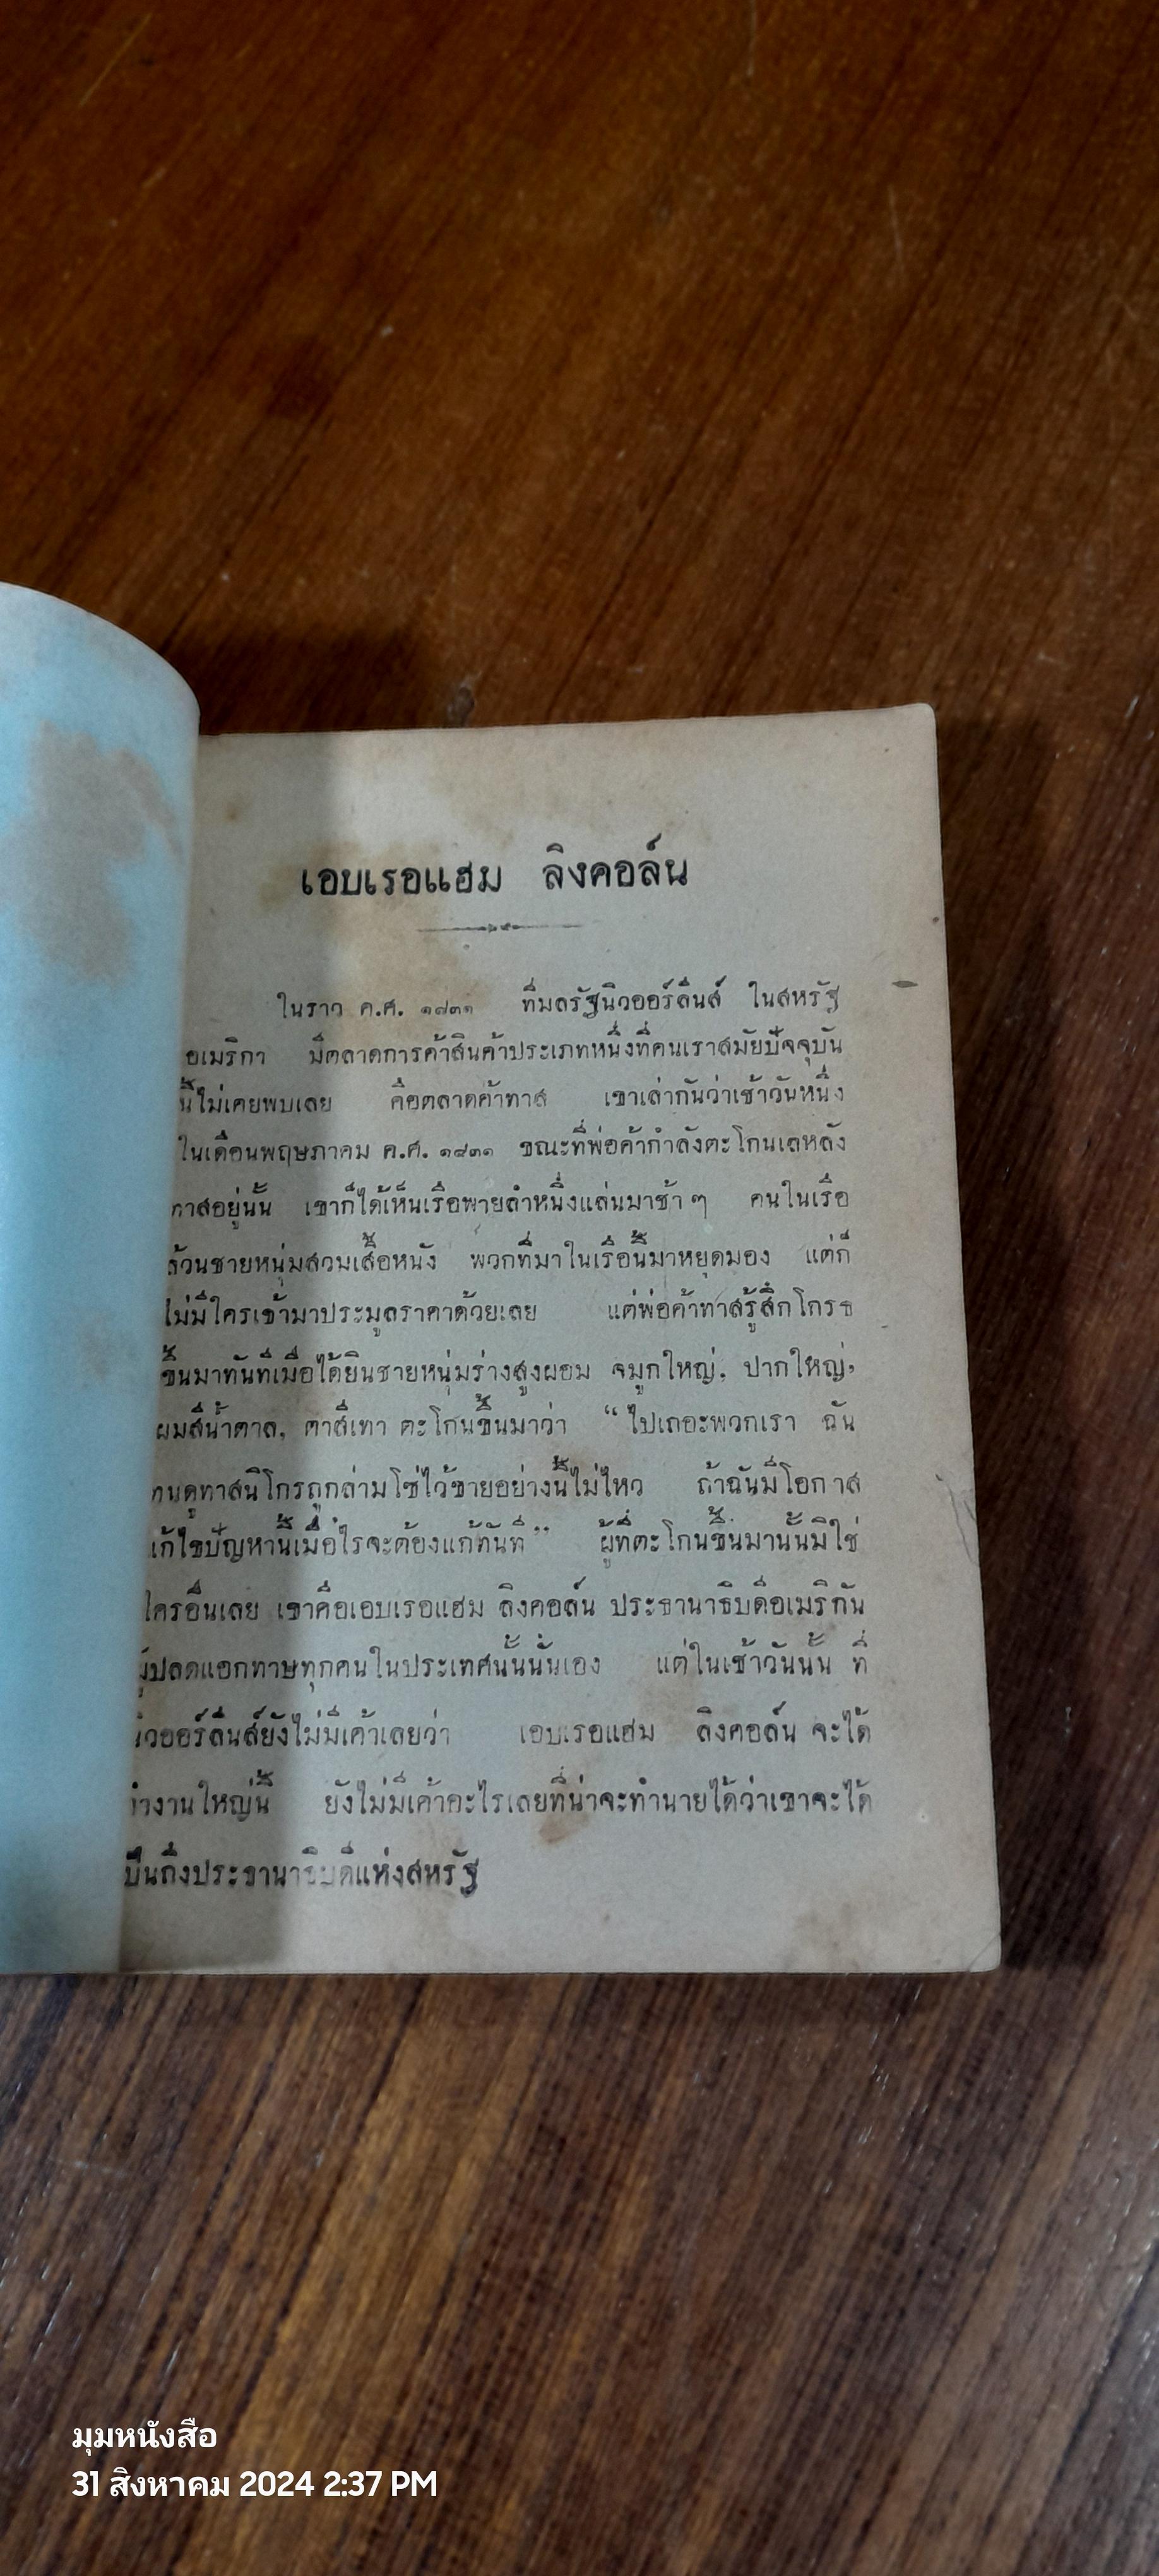 เอบเรอแฮม ลิงคอล์น
ในราว ค.ศ. ๑๘๓๑ ที่มลรัฐนิวออร์ลีนส์ ในสหรัฐ
อเมริกา มีตลาดการค้าสินค้าประเภทหนึ่งที่คนเราสมัยปัจจุบัน
นี้ไม่เคยพบเลย คือตลาดค้าทาส เขาเล่ากันว่าเช้าวันหนึ่ง
ในเดือนพฤษภาคม ค.ศ. ๑๘๓๑ ขณะที่พ่อค้ากำลังตะโกนเลหลัง
ทาสอยู่นั้น เขาก็ได้เห็นเรือพายลำหนึ่งแล่นมาช้า ๆ คนในเรือ
ล้วนชายหนุ่มสวมเสื้อหนัง พวกที่มาในเรือนี้มาหยุดมอง แต่ก็
ไม่มีใครเข้ามาประมูลราคาด้วยเลย แต่พ่อค้าทาสรู้สึกโกรธ
ขึ้นมาทันทีเมื่อได้ยินชายหนุ่มร่างสูงผอม จมูกใหญ่, ปากใหญ่,
ผมสีน้ำตาล, ตาสีเทา ตะโกนขึ้นมาว่า “ ไปเถอะพวกเรา ฉัน
ทนดูทาสนิโกรถูกล่ามโซ่ไว้ขายอย่างนี้ไม่ไหว ถ้าฉันมีโอกาส
แก้ไขปัญหานี้เมื่อไรจะต้องแก้ทันที ” ผู้ที่ตะโกนขึ้นมานั้นมิใช่
ใครอื่นเลย เขาคือเอบเรอแฮม ลิงคอล์น ประธานาธิบดีอเมริกัน
ผู้ปลดแอกทาษทุกคนในประเทศนั้นนั่นเอง แต่ในเช้าวันนั้น ที่
นิวออร์ลีนส์ยังไม่มีเค้าเลยว่า เอบเรอแฮม ลิงคอล์น จะได้
ทำงานใหญ่นี้ ยังไม่มีเค้าอะไรเลยที่น่าจะทำนายได้ว่าเขาจะได้
เป็นถึงประธานาธิบดีแห่งสหรัฐ
มุมหนังสือ
31 สิงหาคม 2024 2:37 PM